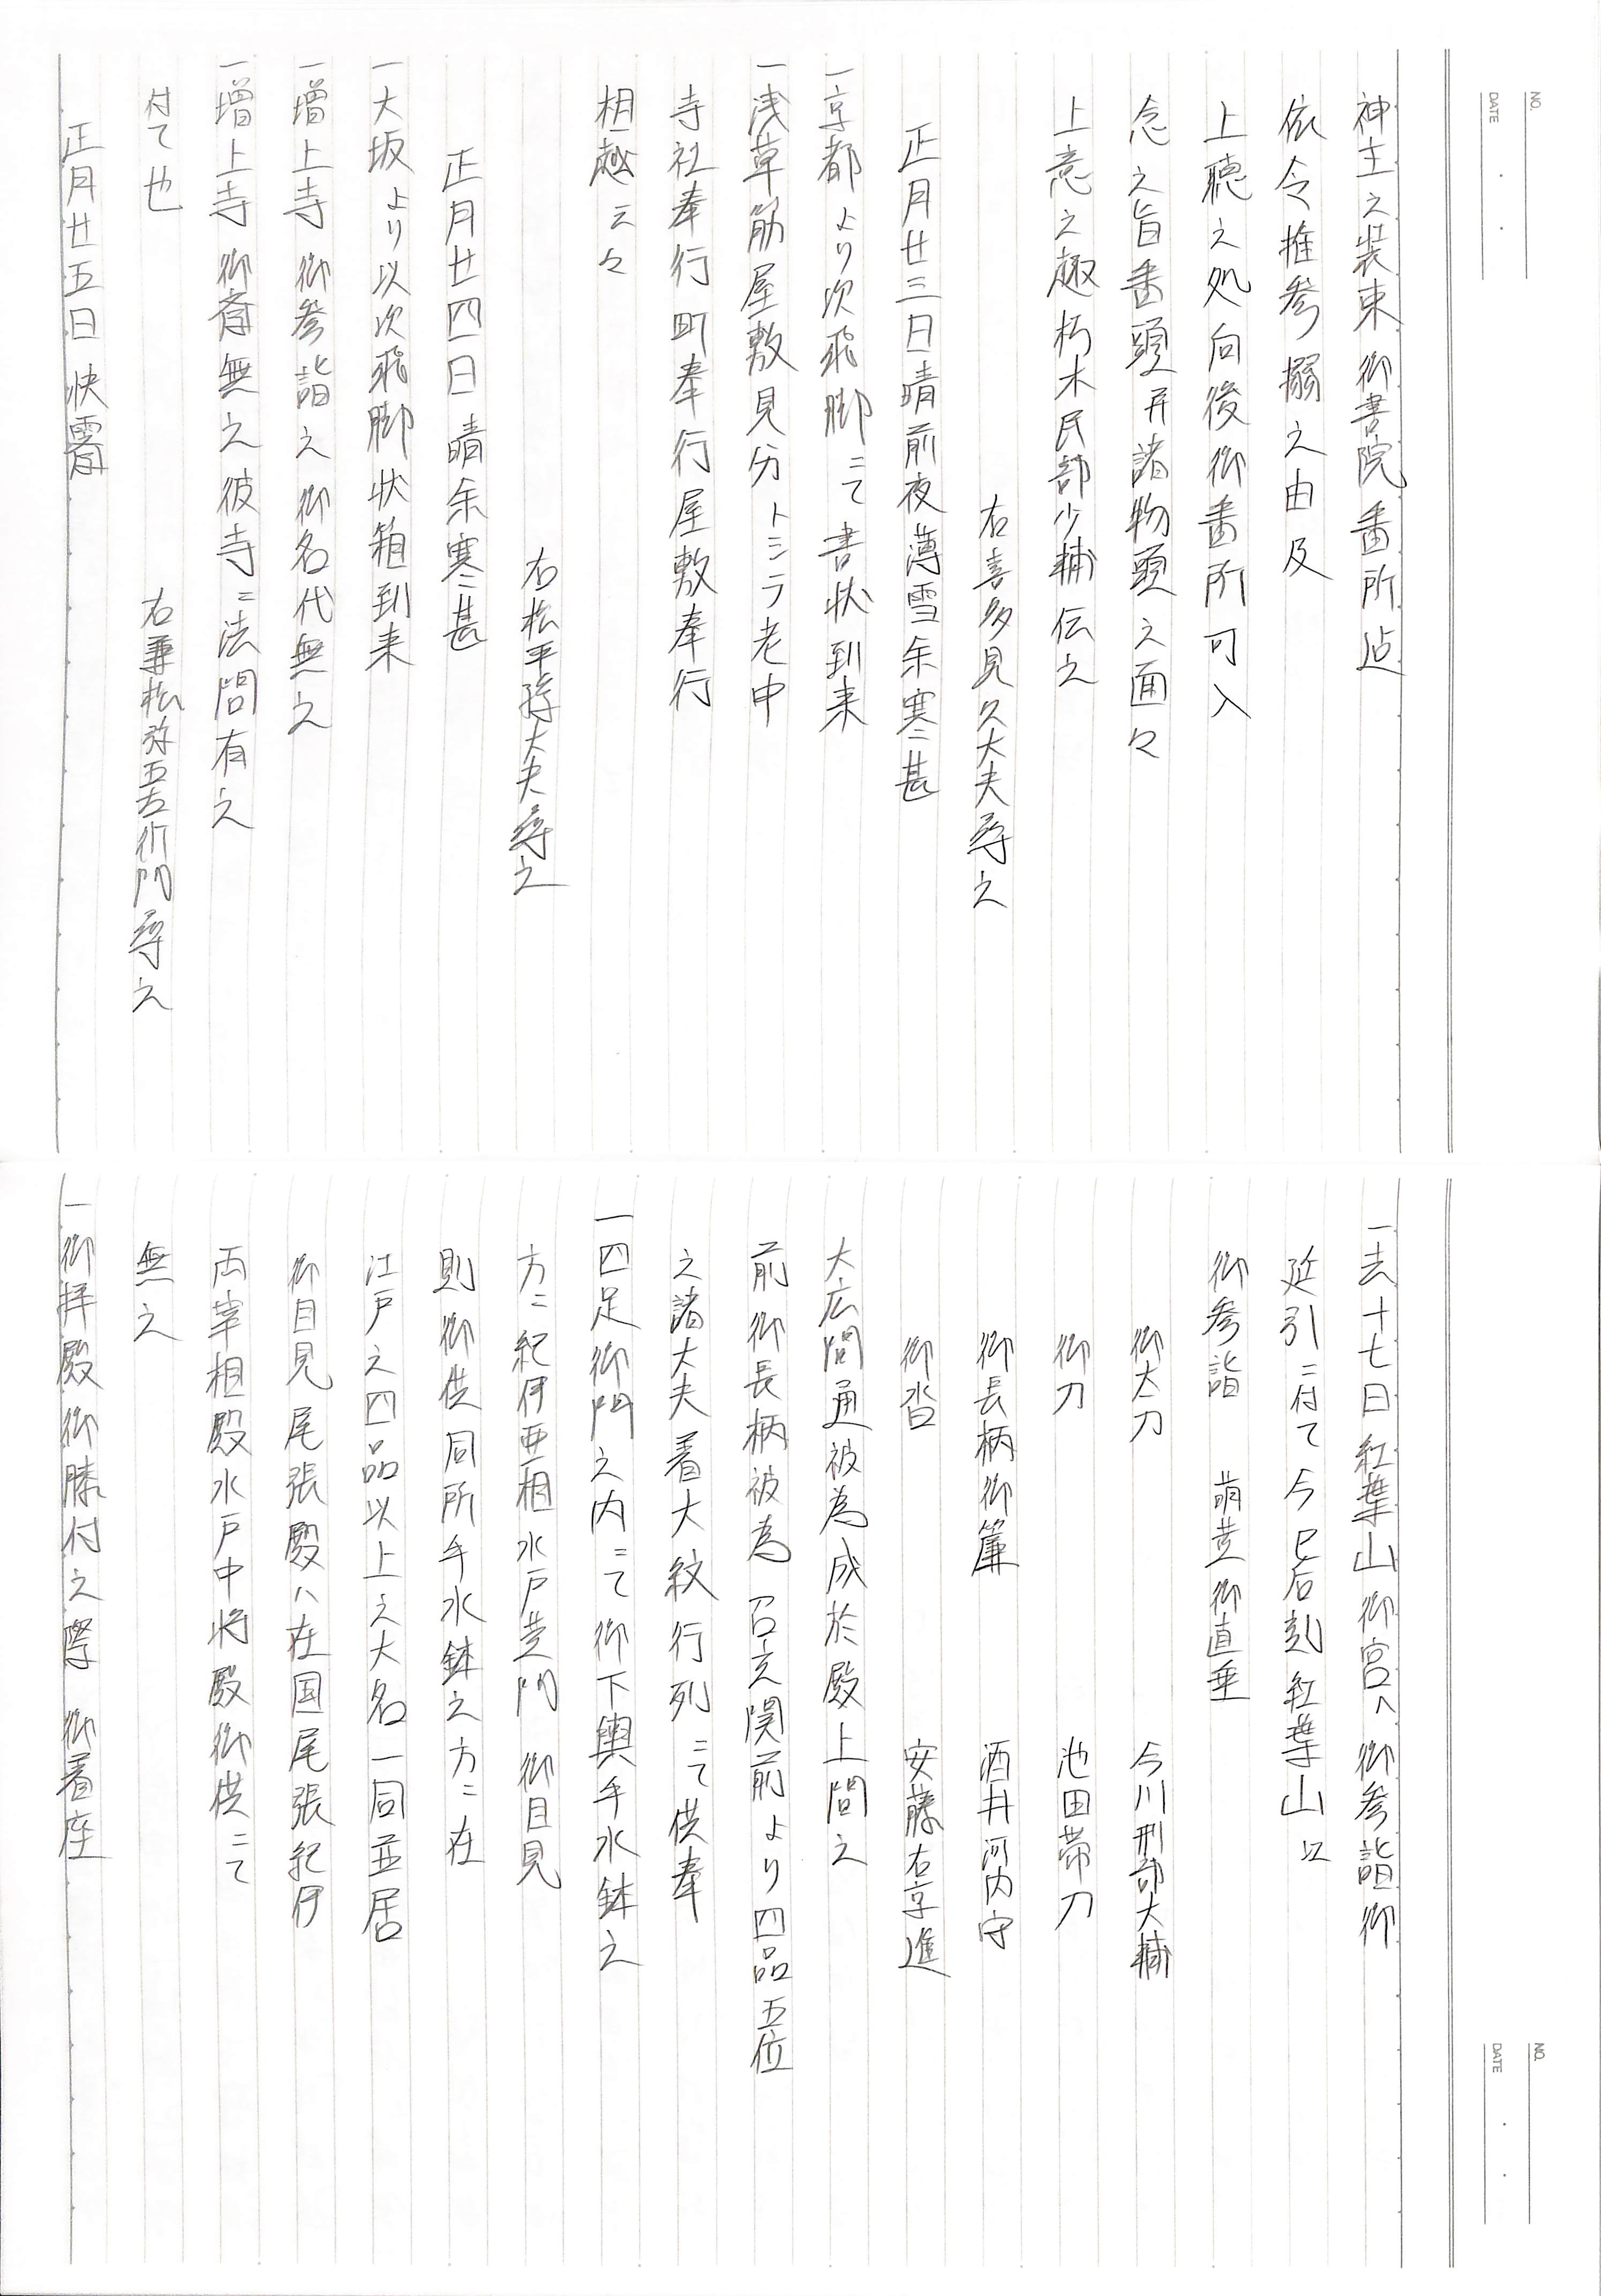 NO.
DATE
神主之装束御書院番所迠
依令推参搦之由及
上聴之処向後御番所可入
念之旨番頭并諸物頭之面々
上意之趣朽木民部少輔伝之
右喜多見久大夫尋之
正月廿三日晴前夜薄雪余寒ニ甚
一京都より次飛脚ニて書状到来
一浅草筋屋敷見分トシテ老中
寺社奉行町奉行屋敷奉行
相越云々
右松平孫大夫尋之
正月廿四日晴余寒ニ甚
一大坂より以次飛脚状箱到来
一増上寺御参詣之御名代無之
一増上寺御斎無之彼寺ニ法問有之
付て也
右兼松弥五左衛門尋之
正月廿五日快霽
NO.
DATE
一去十七日紅葉山御宮へ御参詣御
延引ニ付て今巳后刻紅葉山江
御参詣 萌黄御直垂
御太刀 今川刑部大輔
御刀 池田帯刀
御長柄御簾 酒井河内守
御沓 安藤右京進
大広間通被為成於殿上間之
前御長柄被為召玄関前より四品五位
之諸大夫着大紋行列ニて供奉
一四足御門之内ニて御下輿手水鉢之
方ニ紀伊亜相水戸黄門御目見
則御供同所手水鉢之方ニ在
江戸之四品以上之大名一同並居
御目見尾張殿ハ在国尾張紀伊
両宰相殿水戸中将殿御供ニて
無之
一御拝殿御膝付之際御着座